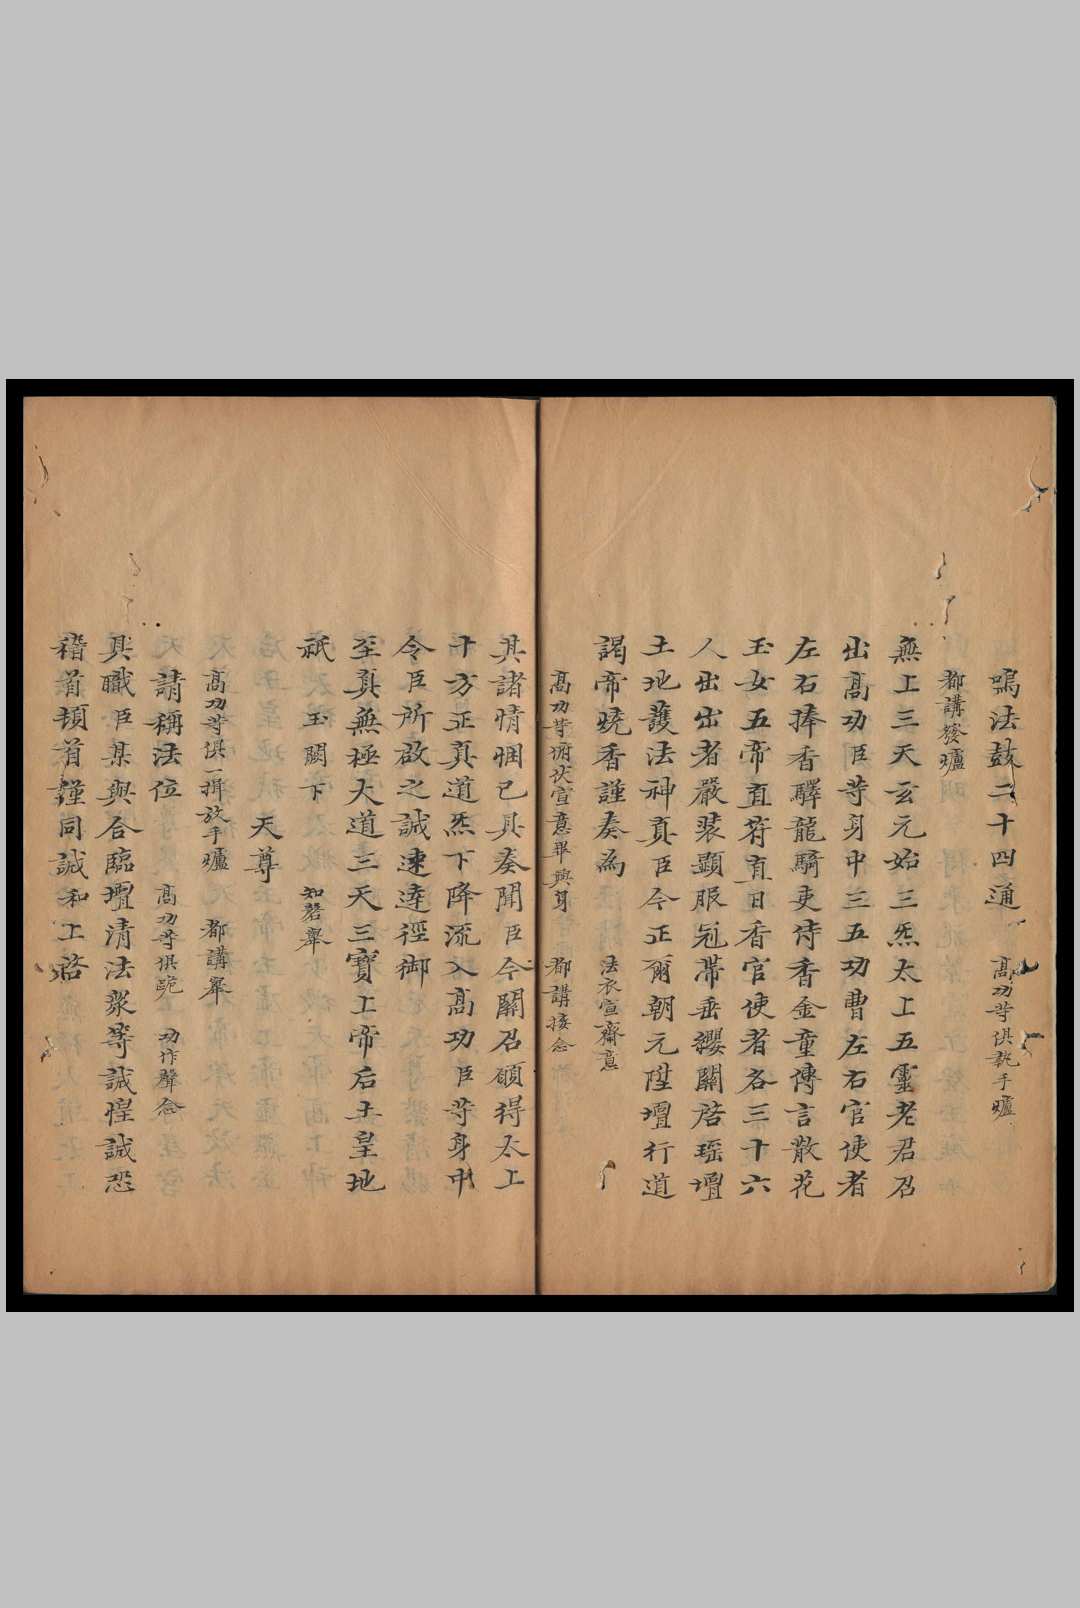 鳴法鼓二十四通 高功等俱執手爐
都講發爐
無上三天玄元始三炁太上五靈老君召
出高功臣等身中三五功曹左右官使者
左右捧香驛龍騎吏侍香金童傳言散花
玉女五帝直符直日香官使者各三十六
人出出者嚴裝顯服冠帶垂纓關啓瑶壇
土地護法神真臣今正爾朝元陞壇行道
謁帝燒香謹奏為 法衣宣齋意
高功等俯伏宣意畢興身 都講接念
其諸情悃已具奏聞臣今關召願得太上
十方正真道炁下降流入高功臣等身中
令臣所啟之誠速達徑御
至真無極大道三天三寶上帝后土皇地
祇玉闕下 知磬舉
天尊
高功等俱一揖放手爐 都講舉
請稱法位 高功等俱跪 功作聲念
具職臣某與合臨壇清法衆等誠惶誠恐
稽首頓首謹同誠和上啓